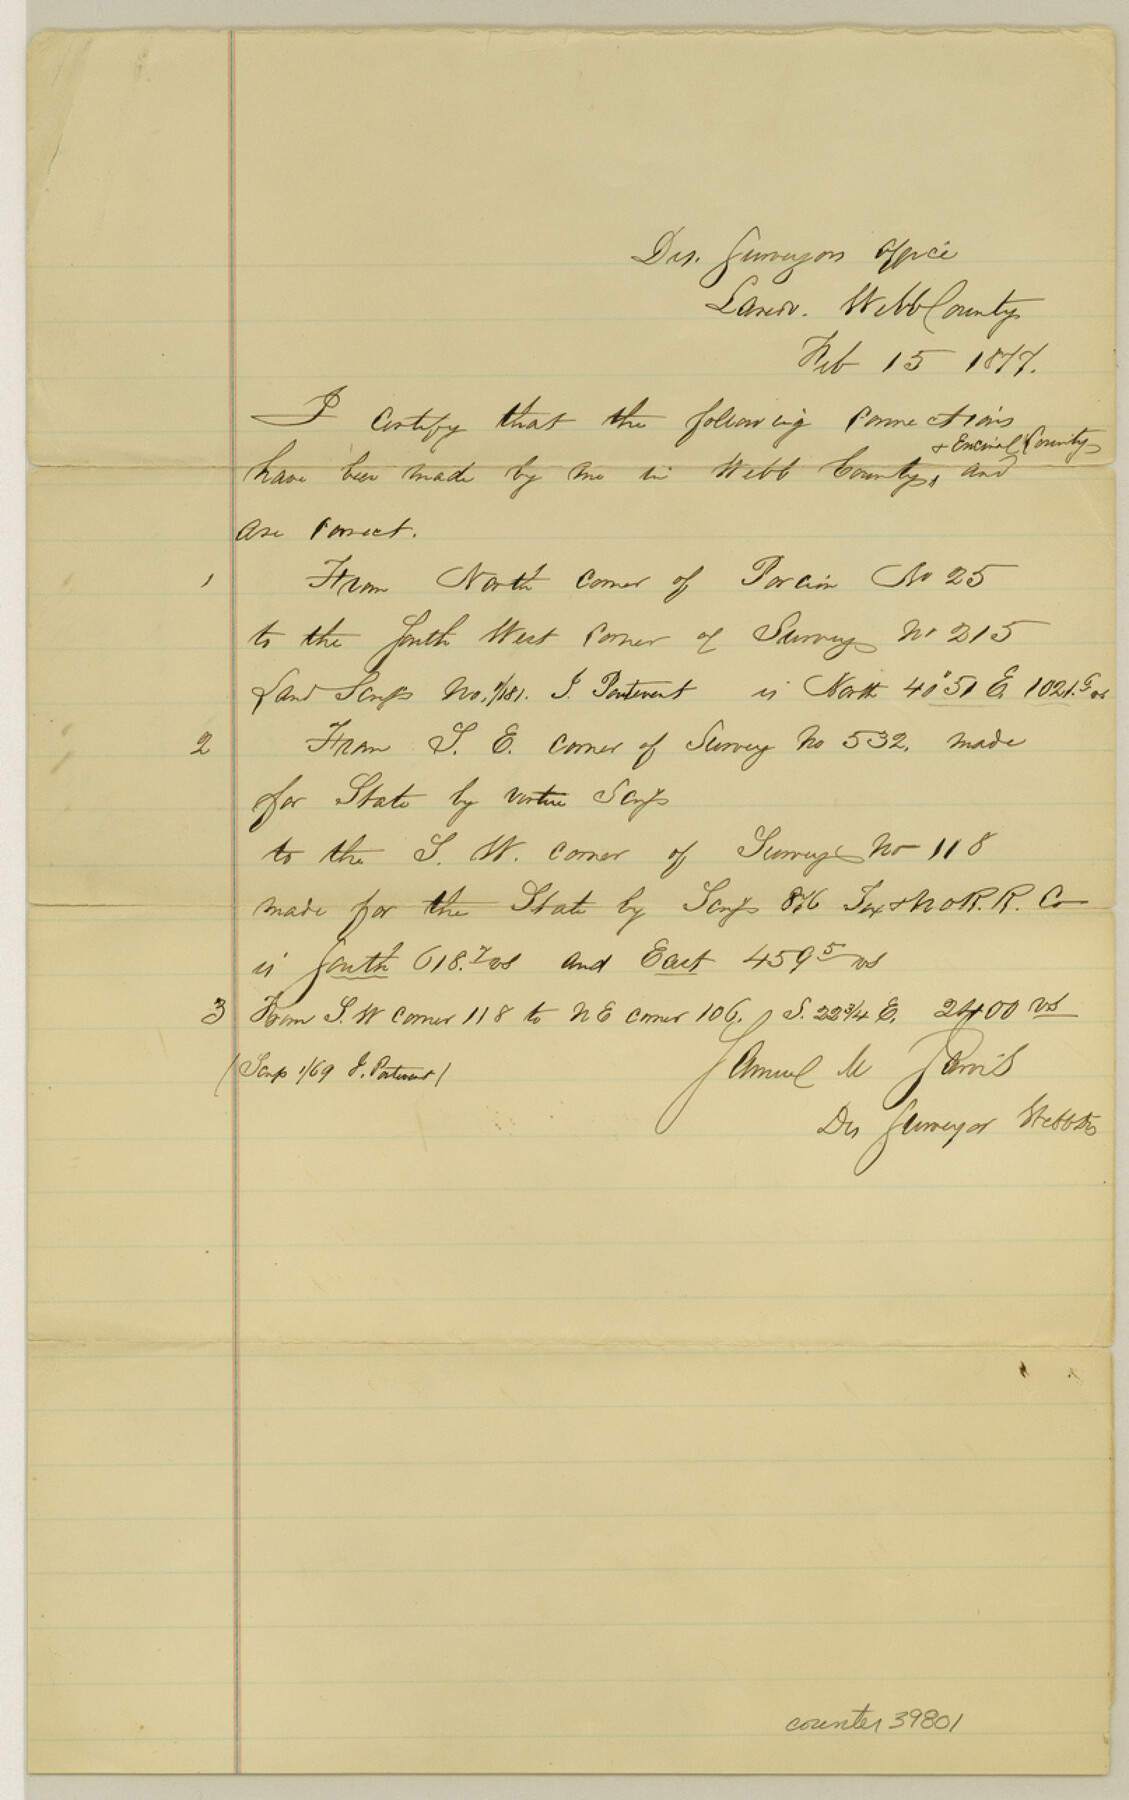 Dis. Surveyors Office
Laredo. Webb County
Feb 15 1877.
I certify that the following connections
& Encinal County
have been made by me in Webb County, and
are correct.
1 From North corner of Porcion No 25
to the South West corner of Survey No 215
Land Scrip No. 1/181. J. Poitevent is North 40°51 E. 1021.5 vs
2 From S. E. corner of Survey No 532. made
for State by virtue Scrip
to the S. W. corner of Survey No 118
made for the State by Scrip 876 Tex & N O R. R. Co
is South 618.7 vs and East 459 5 vs
3 From S. W corner 118 to N E corner 106. S. 22 3/4 E. 2400 vs
(Scrip 1/69 J. Poitevent)
Samuel M Jarvis
Dis Surveyor Webb Co
counter 39801